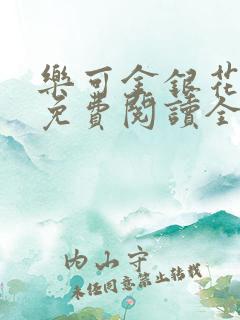 樂可金銀花
免費閱讀全
內山守
未经同意禁止转载